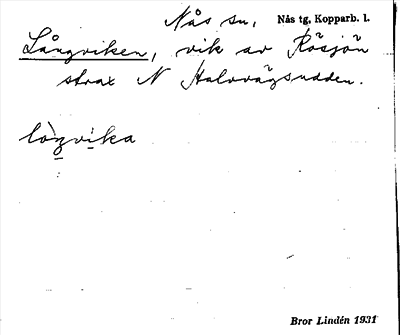 Nås sn. Nås tg, Kopparb. l.
Långviken, vik av Rösjön
strax N Halvvägsudden.
lògvika
Bror Lindén 1931